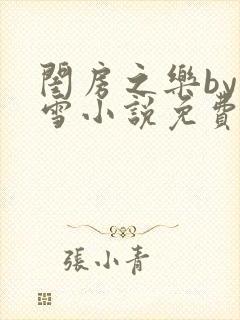 閨房之樂by
雪小說免費
張小青